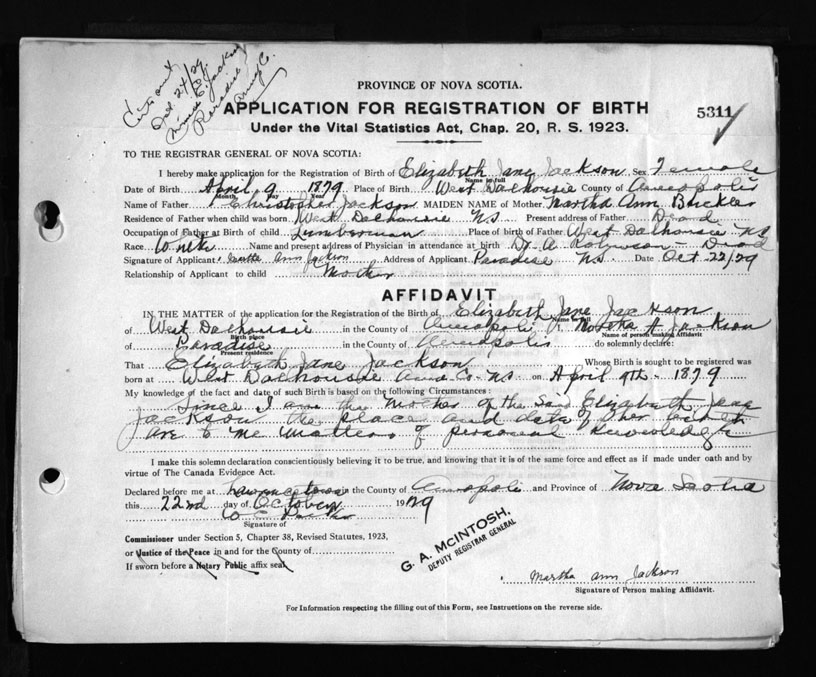 Oct 24/29
Minnie E. Jackson
Paradise
Anna Co.
PROVINCE OF NOVA SCOTIA.
APPLICATION FOR REGISTRATION OF BIRTH
5311
Under the Vital Statistics Act, Chap. 20, R. S. 1923.
TO THE REGISTRAR GENERAL OF NOVA SCOTIA:
I hereby make application for the Registration of Birth of Elizabeth Jane Jackson Sex Female
Name in full
Date of Birth April 9 1879 Place of Birth West Dalhousie County of Annapolis
Month Day Year
Name of Father Christopher Jackson MAIDEN NAME of Mother Martha Ann Buckler
Residence of Father when child was born West Dalhousie NS Present address of Father Dead
Occupation of Father at Birth of child Lumberman Place of birth of Father West Dalhousie NS
Race White Name and present address of Physician in attendance at birth Dr. A Robinson - Dead
Signature of Applicant Martha Ann Jackson Address of Applicant Paradise NS Date Oct 22/29
Relationship of Applicant to child Mother
AFFIDAVIT
IN THE MATTER of the application for the Registration of the Birth of Elizabeth Jane Jackson
Name in full
of West Dalhousie in the County of Annapolis I, Martha A Jackson
Birth place Name of person making Affidavit
of Paradise in the County of Annapolis do solemnly declare:
Present residence
That Elizabeth Jane Jackson Whose Birth is sought to be registered was
born at West Dalhousie Anna Co NS on April 9th 1879
My knowledge of the fact and date of such Birth is based on the following Circumstances:
Since I am the Mother of the Said Elizabeth Jane
Jackson the place and date of her birth
are to me matters of personal knowledge
I make this solemn declaration conscientiously believing it to be true, and knowing that it is of the same force and effect as if made under oath and by
virtue of The Canada Evidence Act.
Declared before me at Lawrencetown in the County of Annapolis and Province of Nova Scotia
this 22nd day of October 1929
Signature of
Commissioner under Section 5, Chapter 38, Revised Statutes, 1923,
or Justice of the Peace in and for the County of
If sworn before a Notary Public affix seal
G. A. McINTOSH,
DEPUTY REGISTRAR GENERAL
Martha Ann Jackson
Signature of Person making Affidavit.
For Information respecting the filling out of this Form, see Instructions on the reverse side.